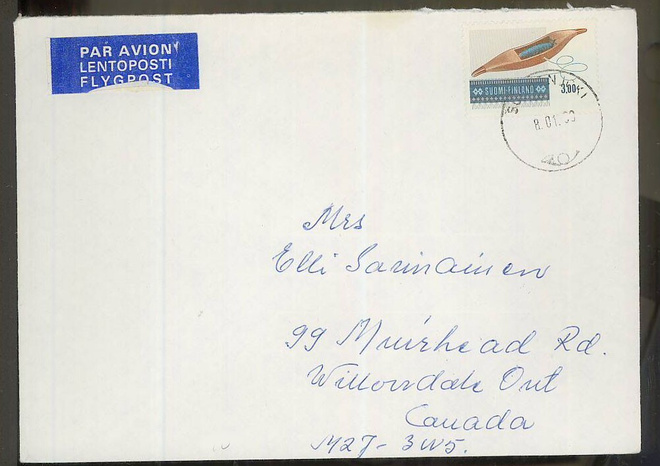 PAR AVION
LENTOPOSTI
FLYGPOST
SUOMI-FINLAND
3,00
8.01.
40
Mrs
Elli Sarinainen
99 Muirhead Rd.
Willowdale Ont
Canada
M2J-3W5.